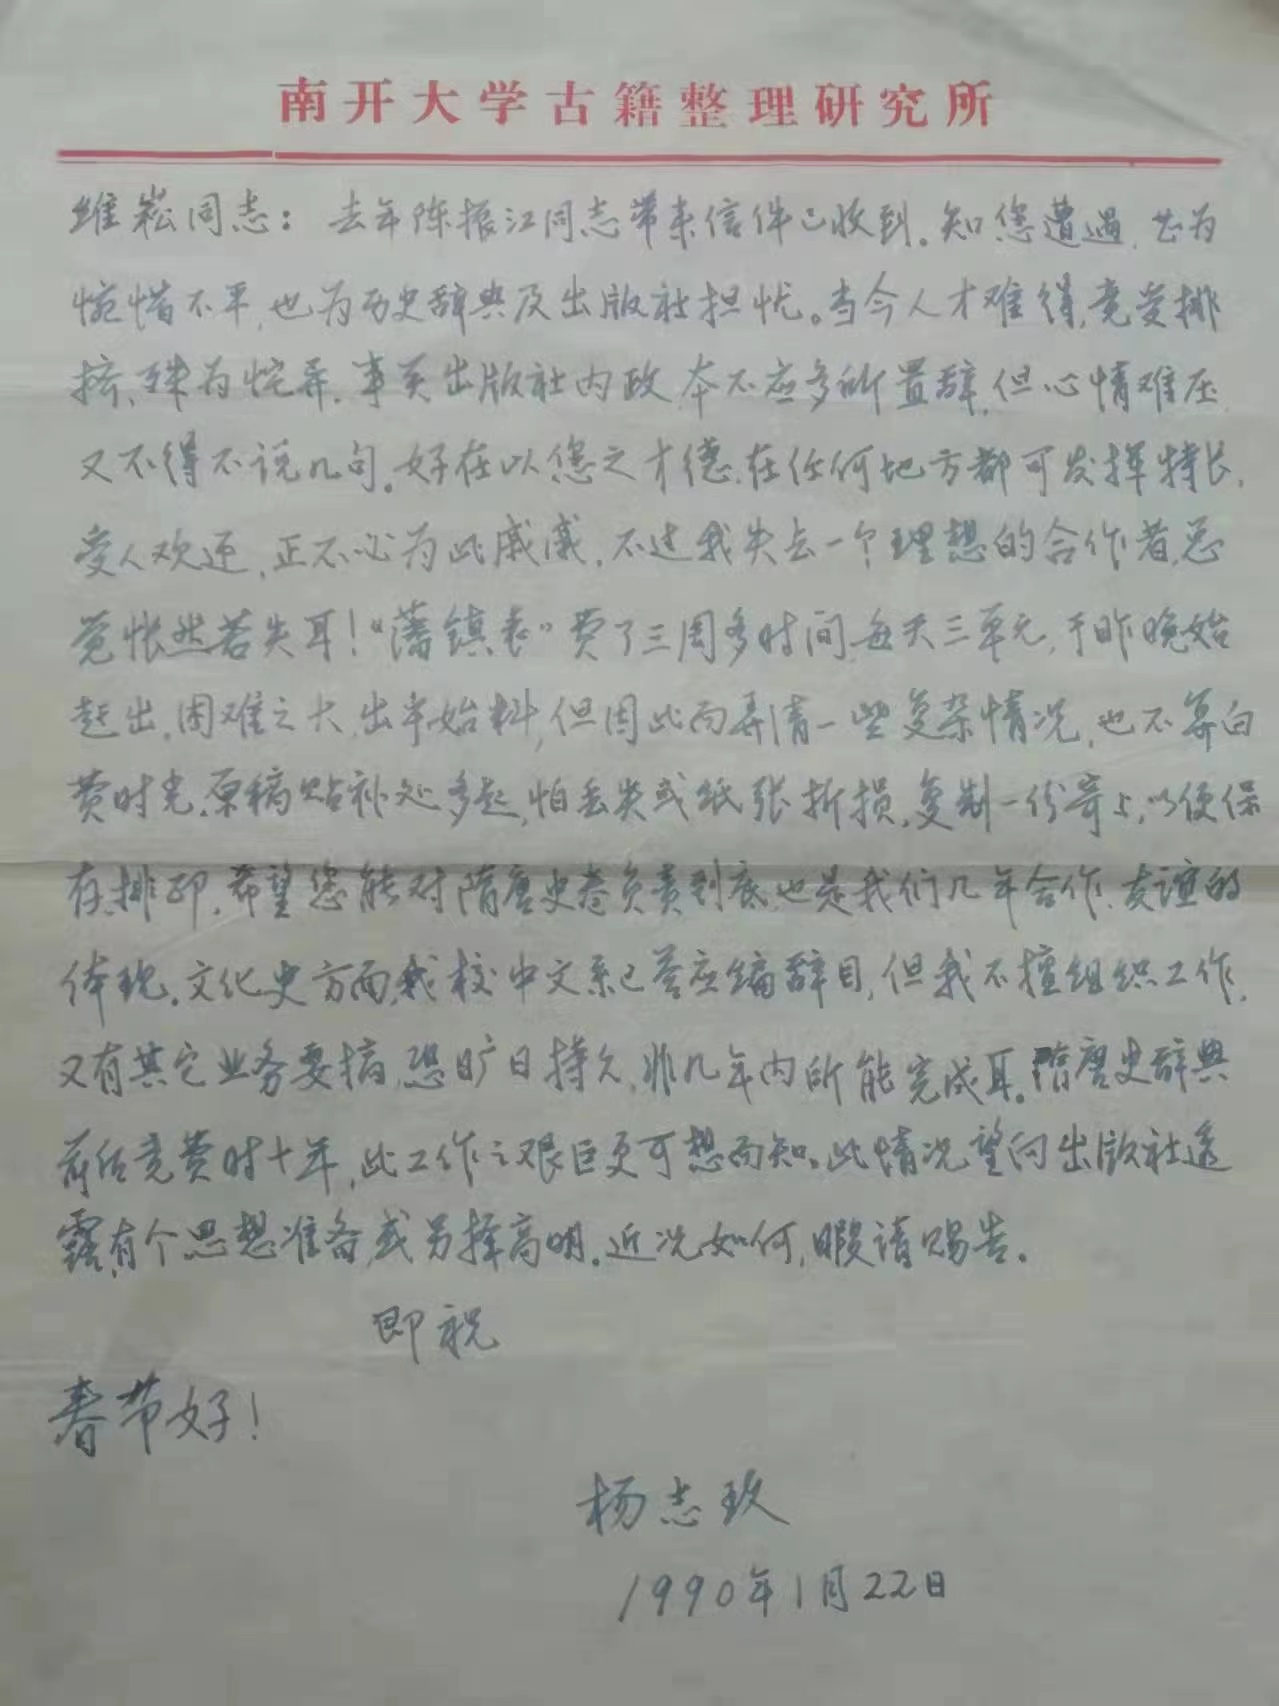 南开大学古籍整理研究所
维崧同志：去年陈振江同志带来信件已收到。知您遭遇，甚为
惋惜不平，也为历史辞典及出版社担忧。当今人才难得，竟受排
挤，殊为忱弄，事关出版社内政，本不应多所置辞，但心情难压，
又不得不说几句。好在以您之才德，在任何地方都可发挥特长，
受人欢迎，正不必为此戚戚，不过我失去一个理想的合作者，总
觉怅然若失耳！“藩镇表”费了三周多时间，每天三单元，于昨晚始
赶出，困难之大，出乎始料，但因此而弄清一些复杂情况，也不算白
费时光。原稿贴补处多起，怕丢失或纸张折损，复制一份寄上，以便保
存、排印。希望您能对隋唐史卷负责到底，也是我们几年合作、友谊的
体现。文化史方面，我校中文系已答应编辞目，但我不擅组织工作，
又有其它业务要搞，恐旷日持久，非几年内所能完成耳。隋唐史辞典
前后竟费时十年，此工作之艰巨更可想而知。此情况望向出版社透
露，有个思想准备，或另择高明。近况如何，暇请赐告。
即祝
春节好！
杨志玖
1990年1月22日